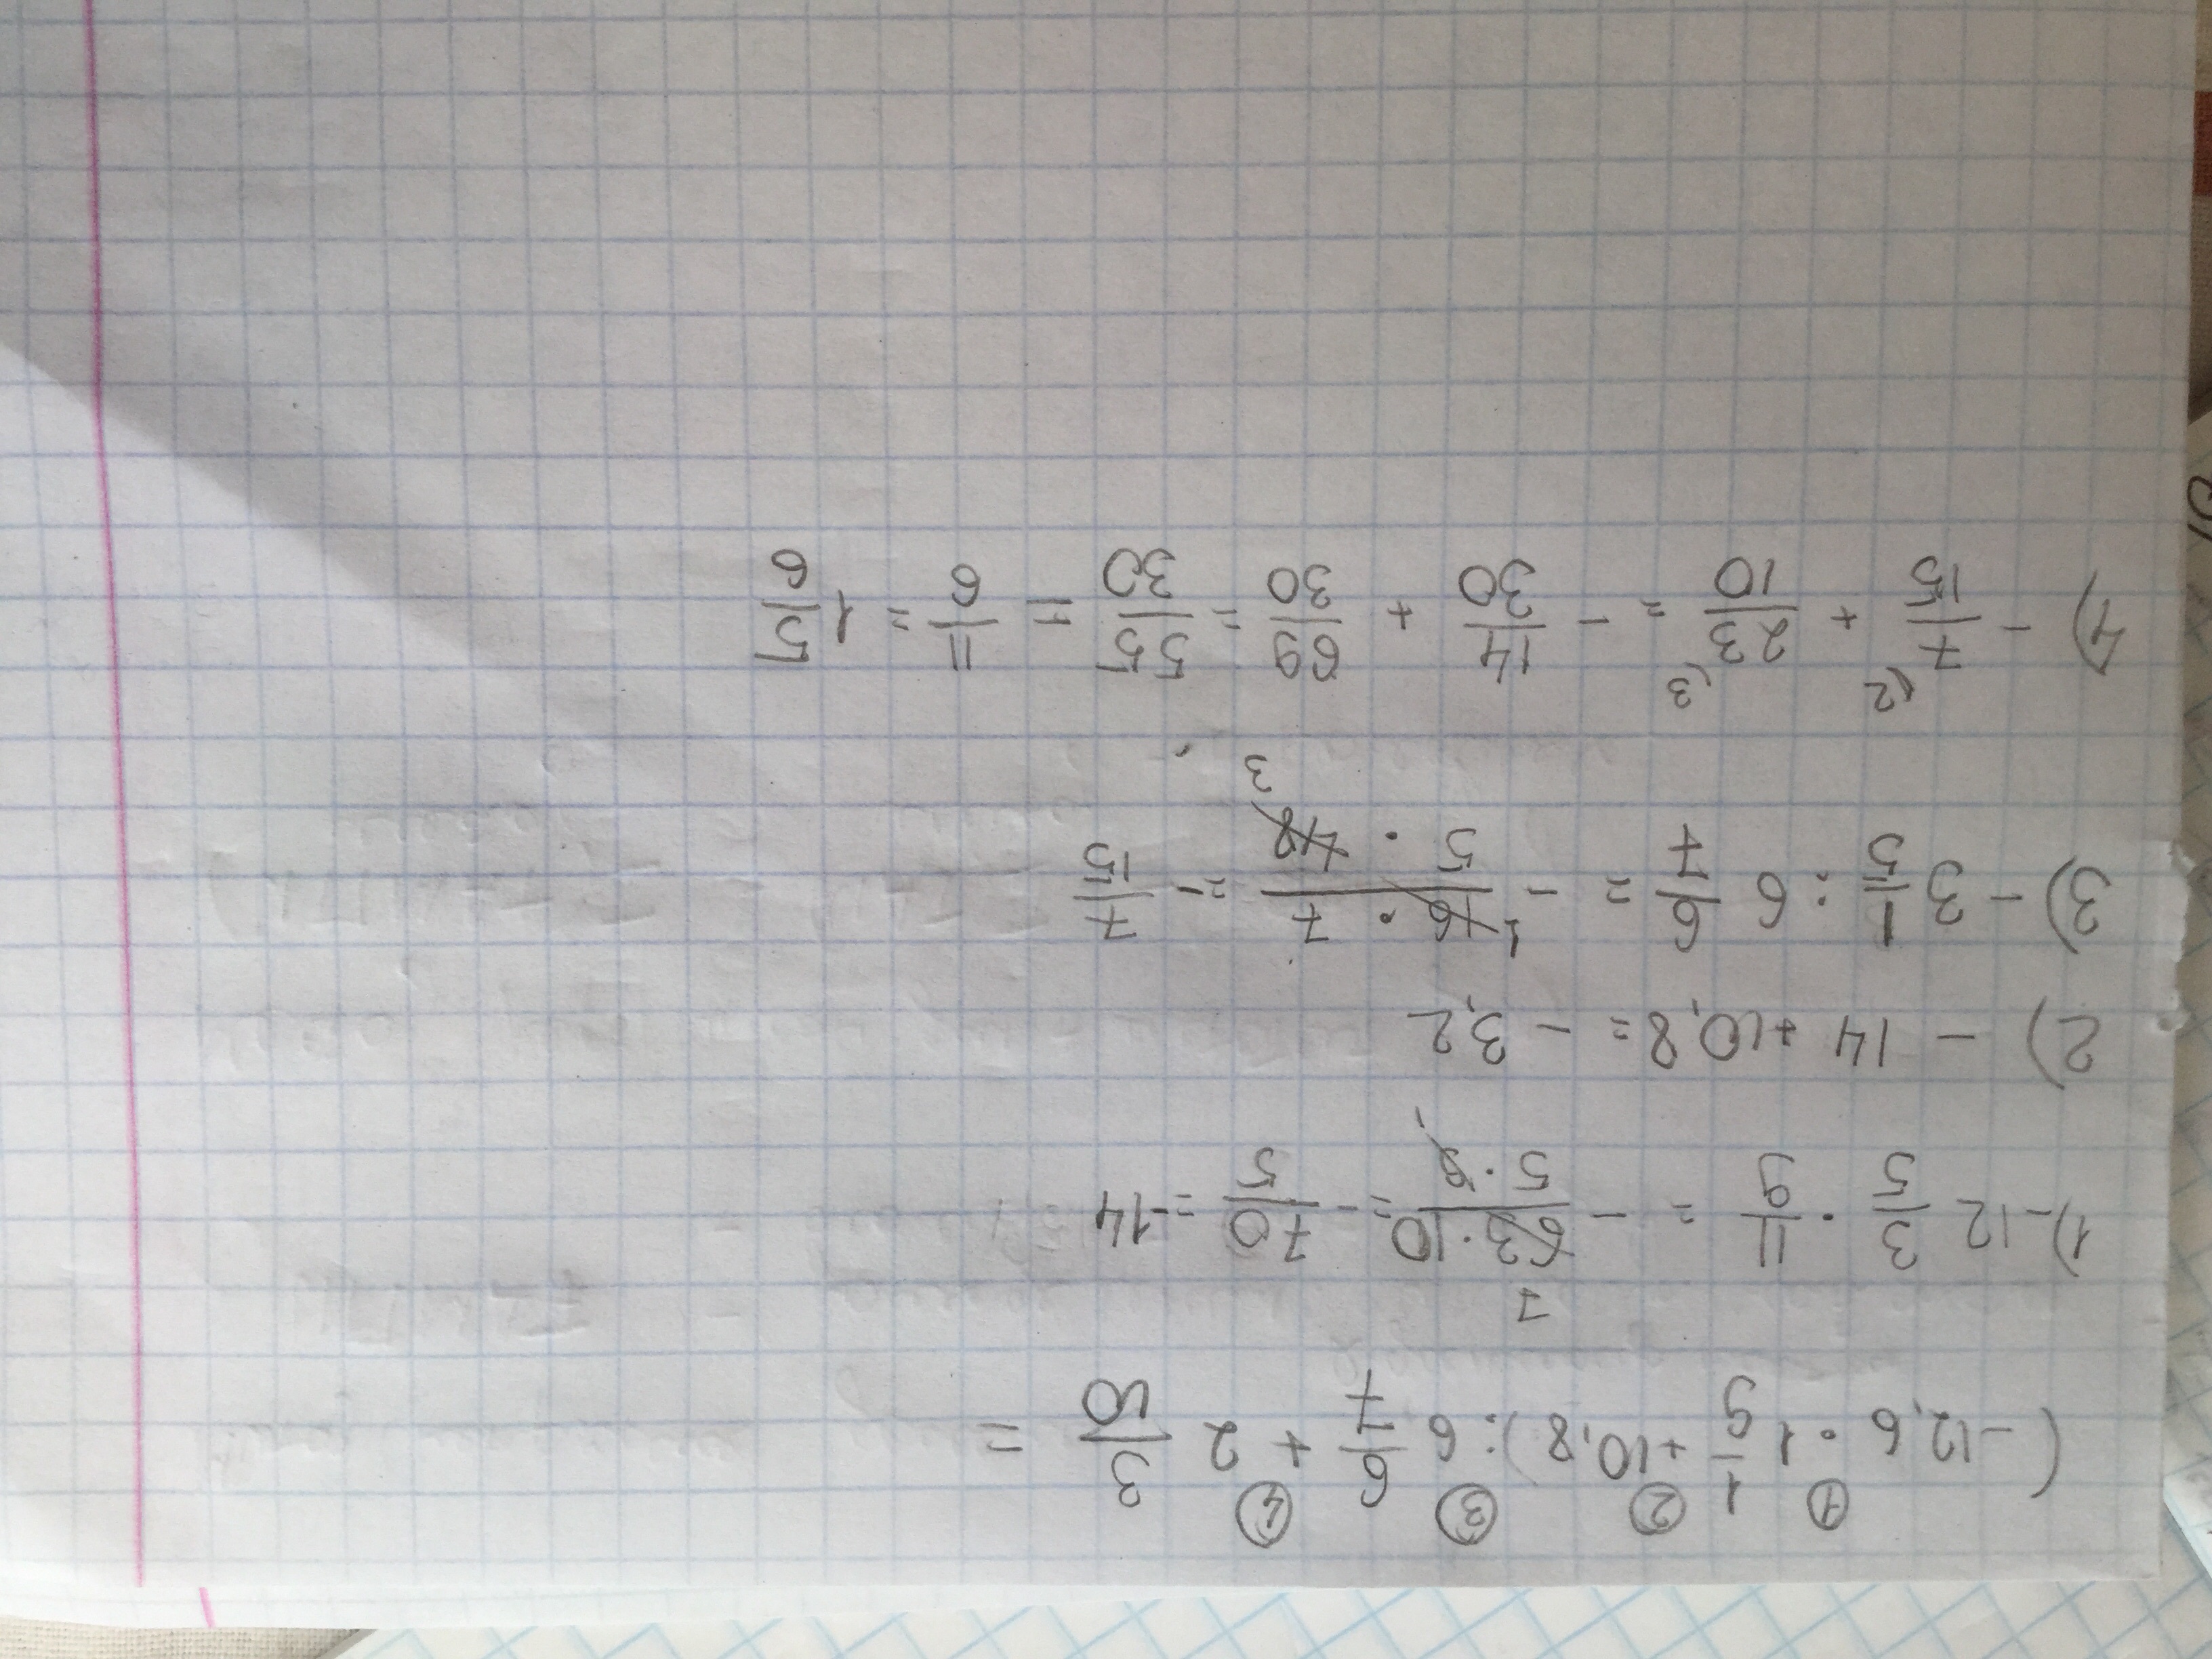 ① ② ③ ④
(-12,6 · 1 1/9 + 10,8) : 6 6/7 + 2 3/10 =
1) -12 3/5 · 11/9 = - 63·10/5·9 = - 70/5 = -14
7
1
2) - 14 + 10,8 = - 3,2
3) - 3 1/5 : 6 6/7 = - 16 · 7/5 · 48 = - 7/15
1
3
(2 (3
4) - 7/15 + 23/10 = - 14/30 + 69/30 = 55/30 = 11/6 = 1 5/6